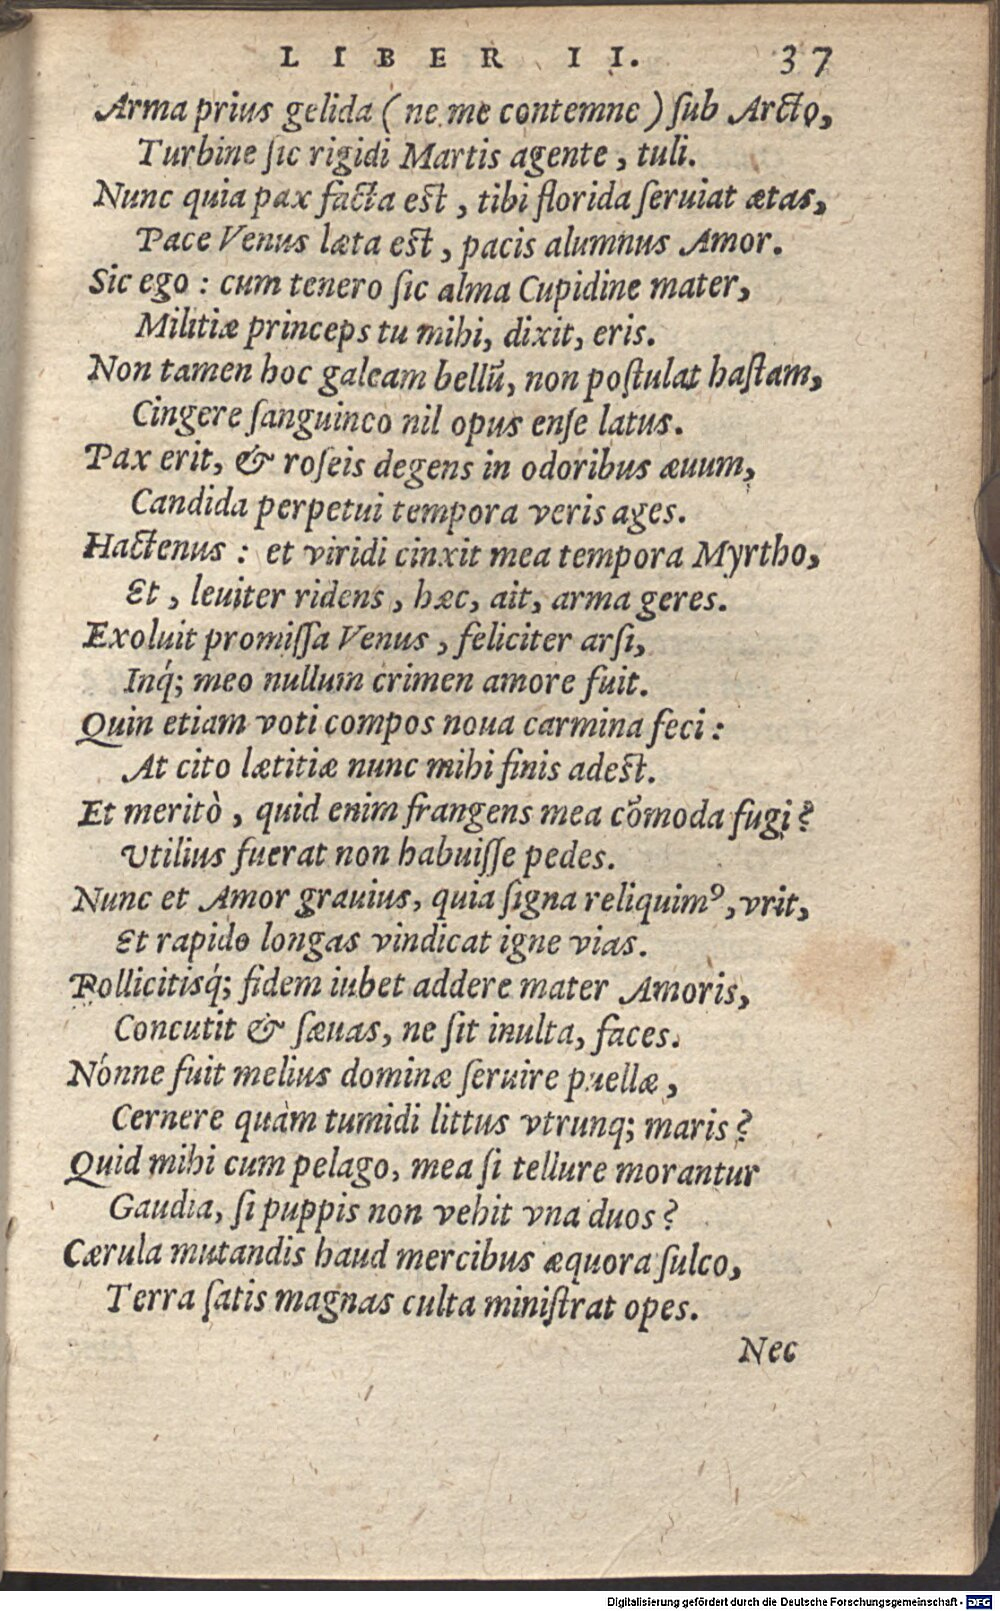 LIBER II. 37
Arma prius gelida (ne me contemne) ſub Arcto,
Turbine ſic rigidi Martis agente, tuli.
Nunc quia pax facta eſt, tibi florida ſeruiat ætas,
Pace Venus læta eſt, pacis alumnus Amor.
Sic ego: cum tenero ſic alma Cupidine mater,
Militiæ princeps tu mihi, dixit, eris.
Non tamen hoc galeam bellū, non poſtulat haſtam,
Cingere ſanguineo nil opus enſe latus.
Pax erit, & roſeis degens in odoribus æuum,
Candida perpetui tempora veris ages.
Hactenus: et viridi cinxit mea tempora Myrtho,
Et, leuiter ridens, hæc, ait, arma geres.
Exoluit promiſſa Venus, feliciter arſi,
Inq́; meo nullum crimen amore fuit.
Quin etiam voti compos noua carmina feci:
At cito lætitiæ nunc mihi finis adeſt.
Et meritò, quid enim frangens mea cōmoda fugi?
Vtilius fuerat non habuiſſe pedes.
Nunc et Amor grauius, quia ſigna reliquimꝰ, vrit,
Et rapido longas vindicat igne vias.
Pollicitisq́; fidem iubet addere mater Amoris,
Concutit & ſæuas, ne ſit inulta, faces.
Nónne fuit melius dominæ ſeruire puellæ,
Cernere quàm tumidi littus vtrunq; maris?
Quid mihi cum pelago, mea ſi tellure morantur
Gaudia, ſi puppis non vehit vna duos?
Cærula mutandis haud mercibus æquora ſulco,
Terra ſatis magnas culta miniſtrat opes.
Nec
Digitalisierung gefördert durch die Deutsche Forschungsgemeinschaft - DFG